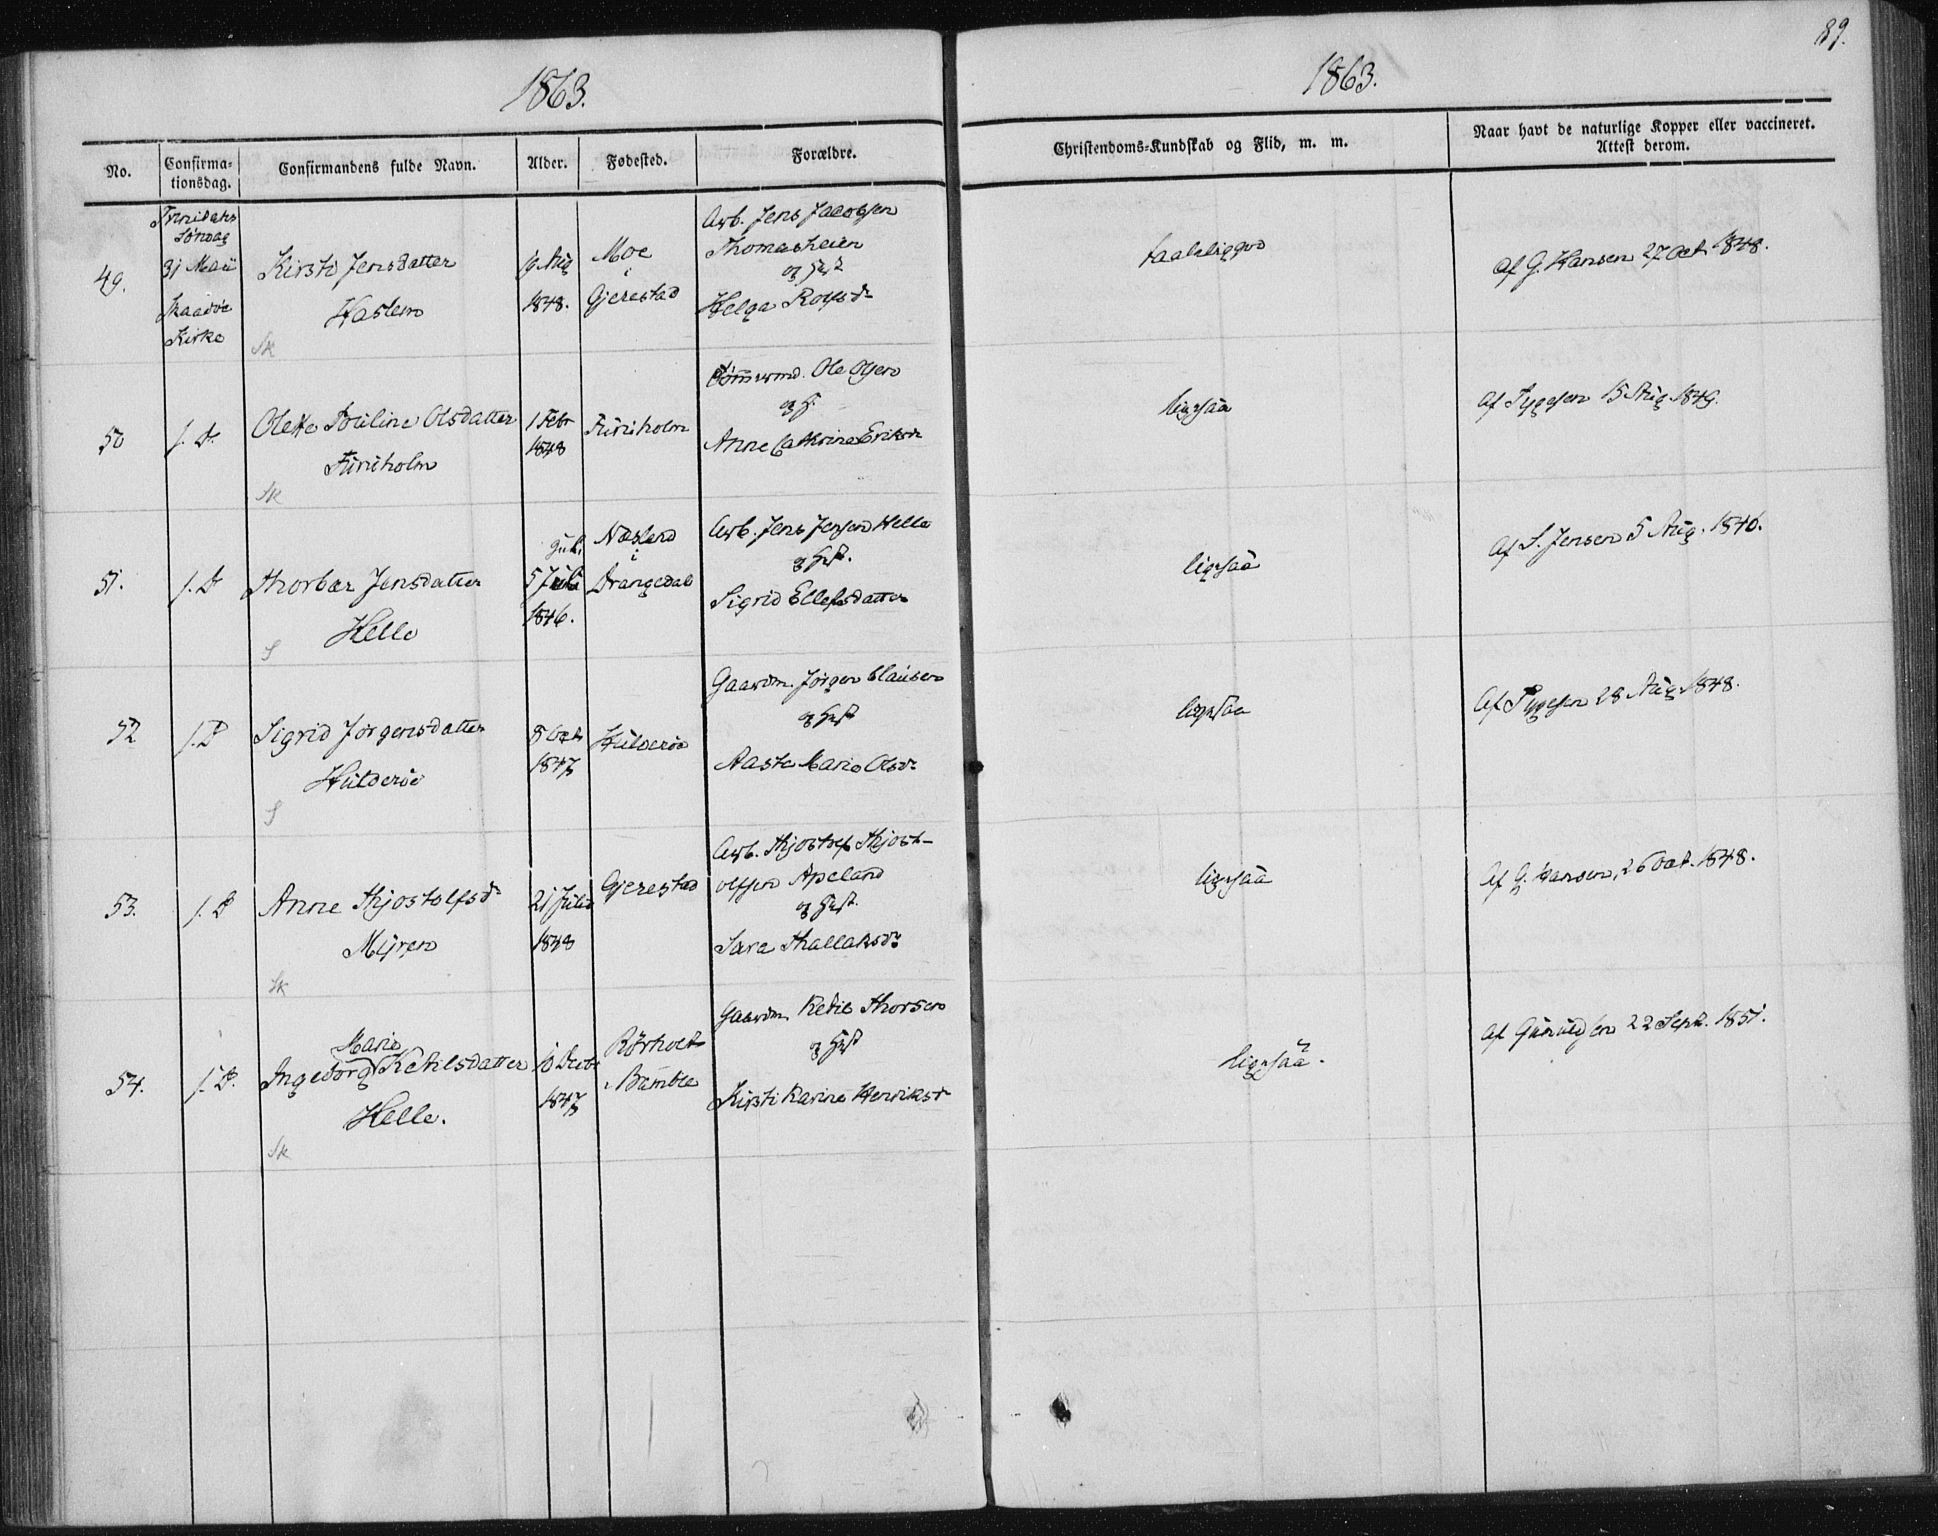 89.
1863.
1863.
No.
Confirma-
tionsdag.
Confirmandens fulde Navn.
Alder.
Fødested.
Forældre.
Christendoms-Kundskab og Flid, m. m.
Naar havt de naturlige Kopper eller vaccineret.
Attest derom.
49.
Trinitatis
Søndag
31 Maii
Skaadøe
Kirke
Kirsti Jensdatter
Haslem
Sk
19 Aug
1848.
Moe
i
Gjerestad
Arb. Jens Jacobsen
Thomasheien
og Hust
Helga Rolfsdr
taaleliggod
af G. Hansen 27 Oct. 1848.
50
s. D.
Olette Pouline Olsdatter
Furuholm
Sk
1 Febr
1848
Furuholm
Tømmermd. Ole Olsen
og H.
Anne Cathrine Eriksdr
ligesaa
af Tygesen 15 Aug 1849.
51.
s. D
Thorbær Jensdatter
Helle
S
5 Juli
1846.
Næsland
i
Drangedal
Arb. Jens Jensen Helle
og Hust.
Sigrid Ellefsdatter
ligesaa
af S. Jensen 5 Aug. 1846.
52
s. D
Sigrid Jørgensdatter
Hulderøe
S
8 Oct
1847
Hulderøe
Gaardm. Jørgen Clausen
og Hust
Aaste Marie Olsdr
ligesaa
Af Tygesen 28 Aug 1848.
53.
s. D
Anne Thjostolfsdr
Myren
Sk
21 Juli
1848
Gjerestad
Arb. Thjostolf Thjost-
olfsen Apeland
og Hust.
Sara Thallaksdr
ligesaa
Af G. Hansen, 26 Oct. 1848.
54.
s. D.
Marie
Ingeborg Ketilsdatter
Helle.
Sk
10 Decbr
1847
Rørholt
i Bamble
Gaardm. Ketil Thorsen
og Hust
Kirsti Karine Henriksdr
ligesaa.
af 22 Sept. 1851.